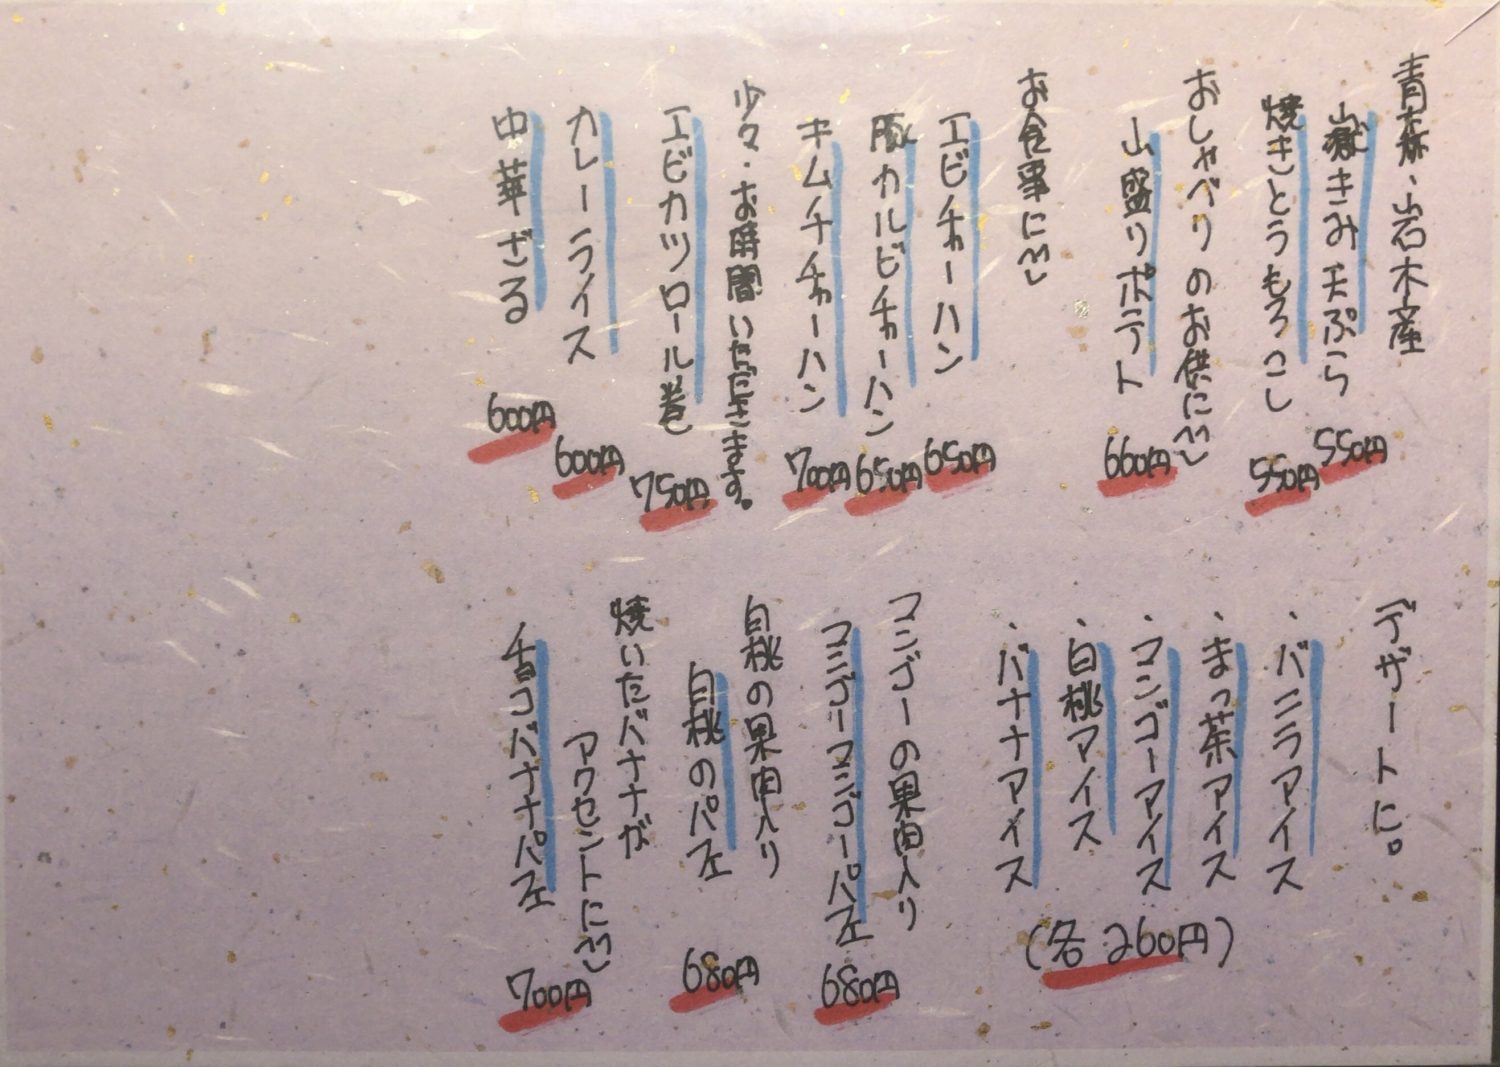 青森、岩木産
嶽きみ天ぷら 550円
焼きとうもろこし 550円
おしゃべりのお供に
山盛りポテト 660円
お食事に
エビチャーハン 650円
豚カルビチャーハン 650円
キムチチャーハン 700円
少々・お時間いただきます。
エビカツロール巻 750円
カレーライス 600円
中華ざる 600円
デザートに。
・バニラアイス
・まっ茶アイス
・マンゴーアイス
・白桃アイス
・バナナアイス
(各260円)
マンゴーの果肉入り
マンゴーマンゴーパフェ 680円
白桃の果肉入り
白桃のパフェ 680円
焼いたバナナが
アクセントに
香コバナナパフェ 700円